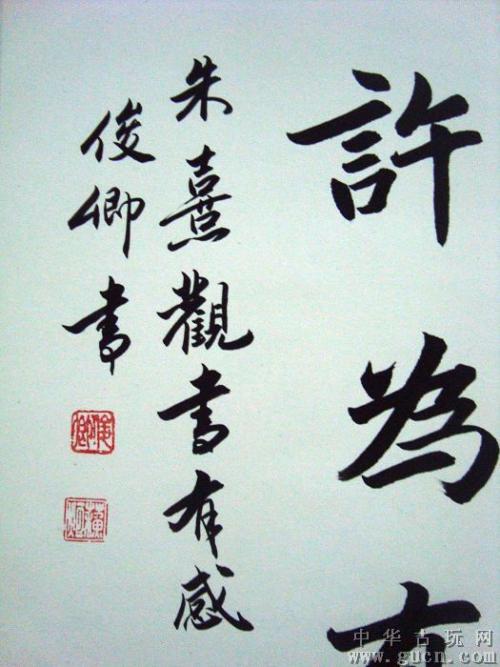 許為
朱熹觀書有感
俊卿書
中华古玩网
www.gucn.com